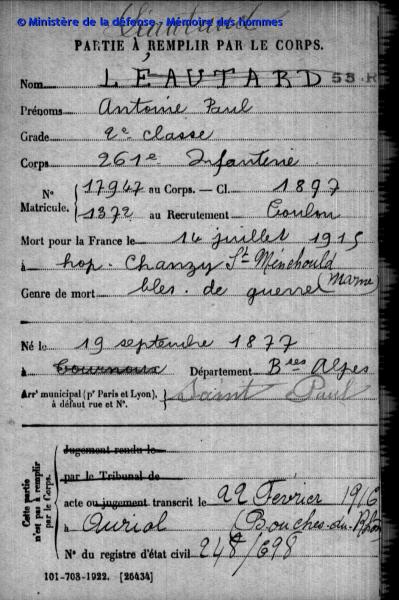 Liautaud
© Ministère de la défense - Mémoire des hommes
PARTIE À REMPLIR PAR LE CORPS.
Nom LÉAUTARD 53.R
Prénoms Antoine Paul
Grade 2e classe
Corps 261e Infanterie
N° Matricule. 17947 au Corps. — Cl. 1897
1372 au Recrutement Toulon
Mort pour la France le 14 juillet 1915
à hop. Chanzy St-Ménehould
Genre de mort bles. de guerre (Marne)
Né le 19 septembre 1877
à Tournoux Département Bses Alpes
Arrt municipal (pr Paris et Lyon), à défaut rue et N°. Saint Paul
Cette partie n'est pas à remplir par le Corps.
Jugement rendu le
par le Tribunal de
acte ou jugement transcrit le 22 Février 1916
à Auriol (Bouches-du-Rhône
N° du registre d'état civil 248/698
101-708-1922. [26434]